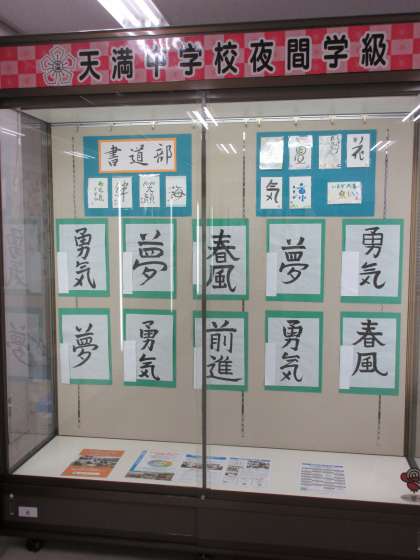 天満中学校夜間学級
書道部
絆
笑顔
海
花
気
海
勇気
夢
春風
夢
勇気
夢
勇気
前進
勇気
春風